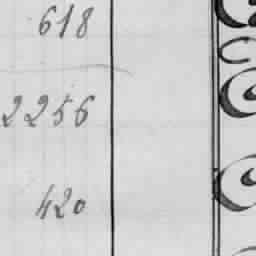 618
2256
420